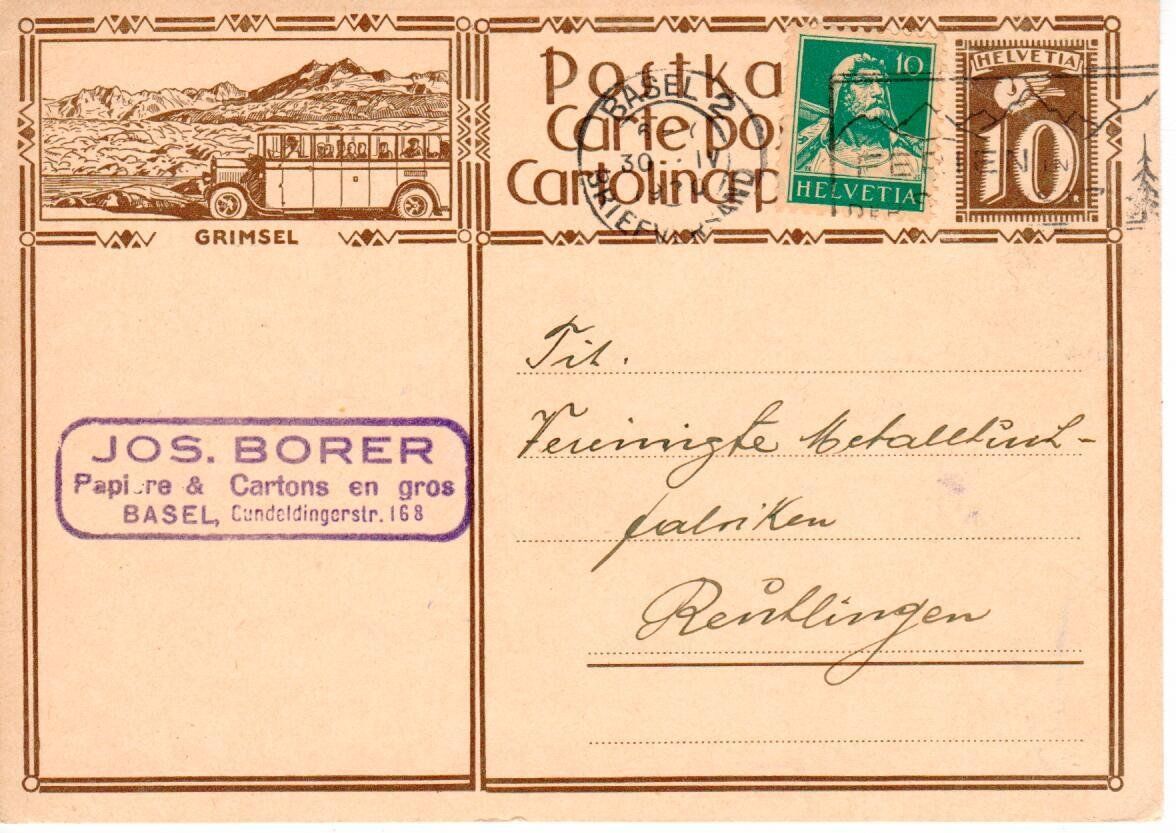 Postka
Carte pos
Cartolina p
BASEL 2
30 IV
BRIEFVERSAND
10
HELVETIA
HELVETIA
10
FERIEN IN
GRIMSEL
JOS. BORER
Papiere & Cartons en gros
BASEL, Gundeldingerstr. 168
Tit.
Vereinigte Metalltuch-
fabriken
Reutlingen